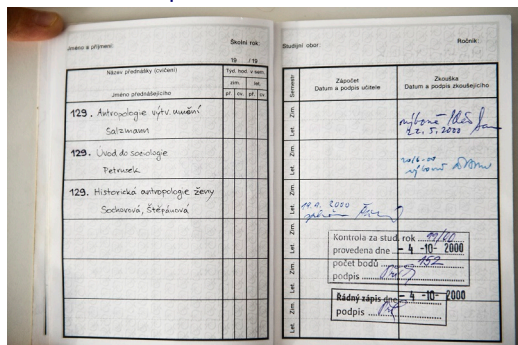 Jméno a příjmení:
Školní rok:
19 / 19
Název přednášky (cvičení)
Týd. hod. v sem.
zim.
let.
Jméno přednášejícího
př. cv. př. cv.
129. Antropologie výtv. umění
Salzmann
129. Úvod do sociologie
Petrusek
129. Historická antropologie ženy
Sochorová, Štěpánová
Studijní obor:
Ročník:
Semestr
Zápočet
Datum a podpis učitele
Zkouška
Datum a podpis zkoušejícího
Zim.
Let.
výborně
22. 5. 2000
Zim.
Let.
20/6-00
výborně
Zim.
Let.
19. 9. 2000
Zim.
Let.
Kontrola za stud. rok 99/00
provedena dne - 4 -10- 2000
počet bodů 152
podpis
Zim.
Let.
Řádný zápis dne - 4 -10- 2000
podpis
Zim.
Let.